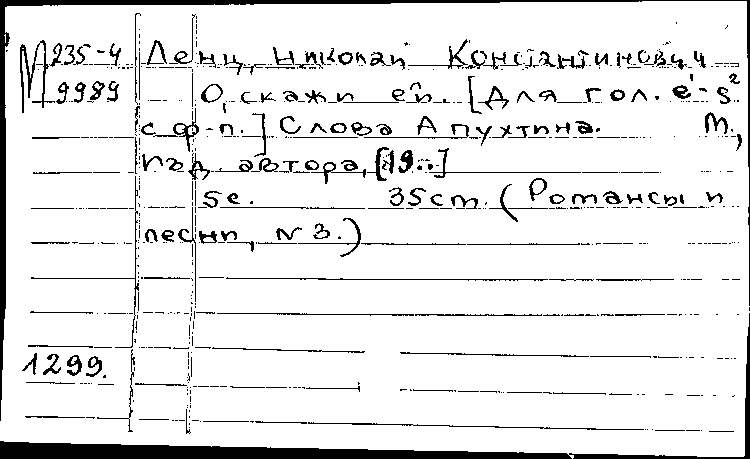 М 235-4 Ленц, Николай Константинович
9989 О, скажи ей. [Для гол. e¹-g²
с ф-п.] Слова Апухтина. М.,
изд. автора, [19..]
5с. 35см. (Романсы и
песни, N 3.)
1299.